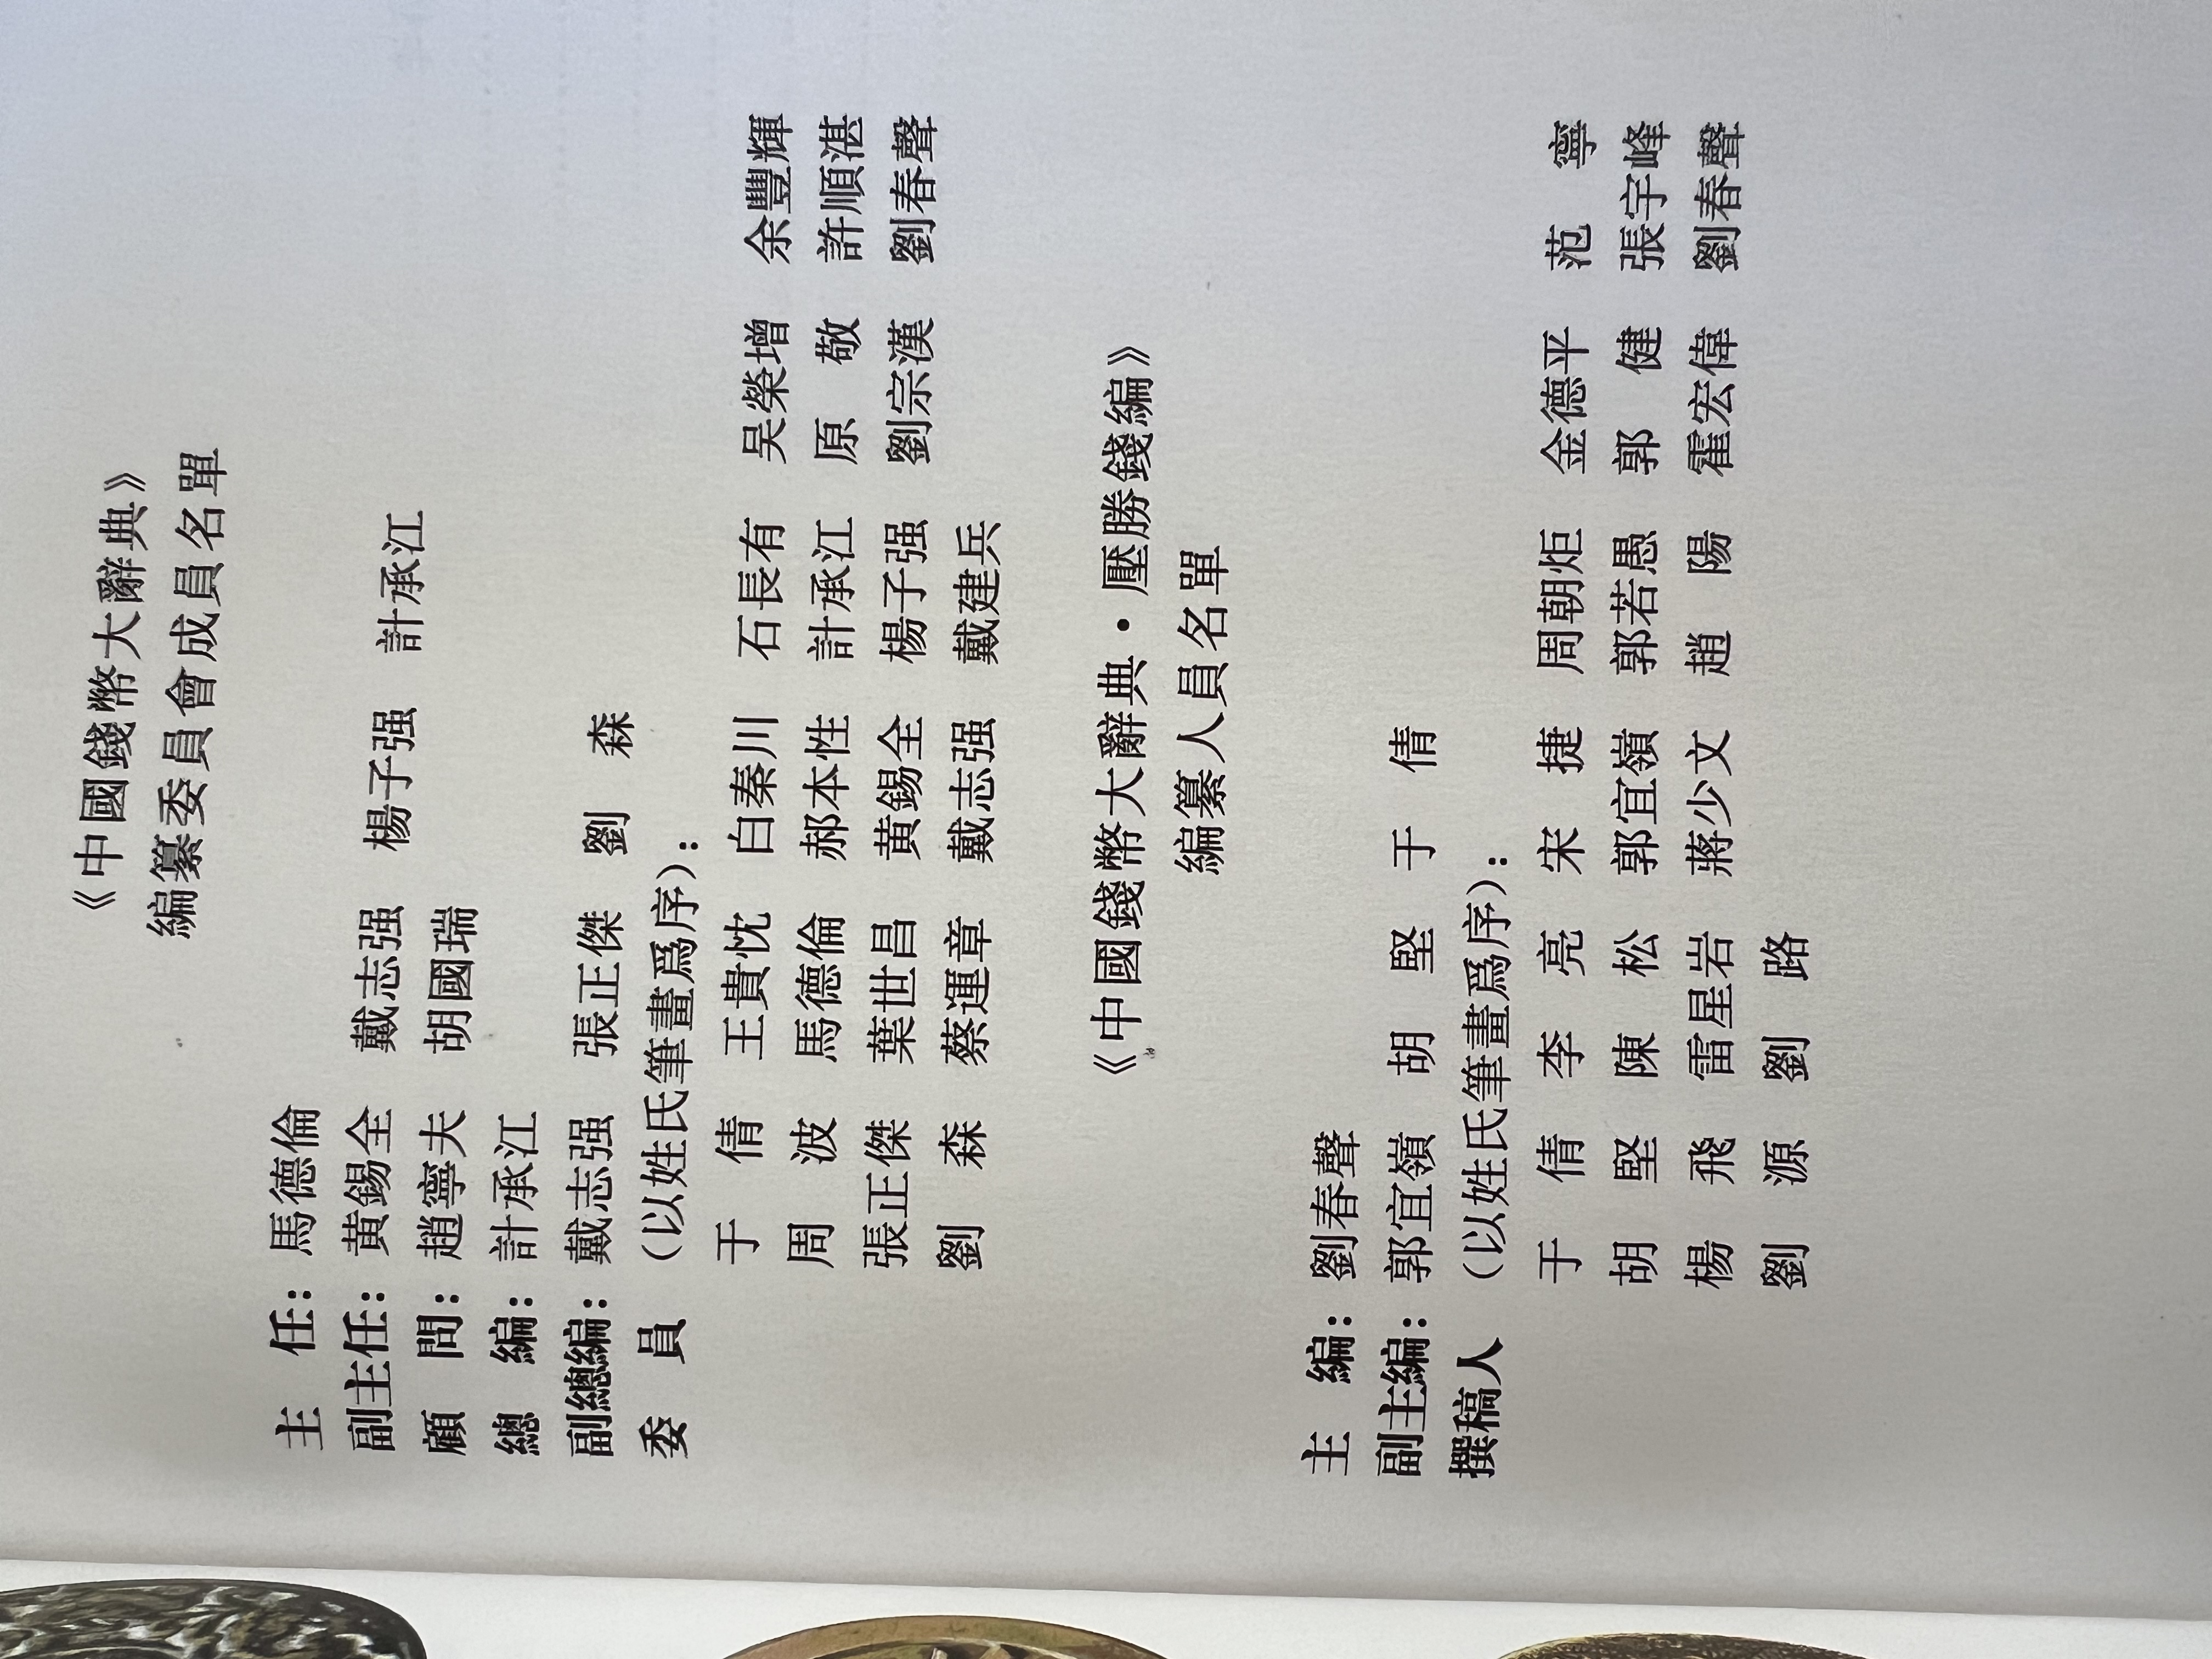 《中國錢幣大辭典》
編纂委員會成員名單
主　任：馬德倫
副主任：黄錫全　戴志强　楊子强　計承江
顧　問：趙寧夫　胡國瑞
總　編：計承江
副總編：戴志强　張正傑　劉　森
委　員（以姓氏筆畫爲序）：
于　倩　王貴忱　白秦川　石長有　吴榮增　余豐輝
周　波　馬德倫　郝本性　計承江　原　敬　許順湛
張正傑　葉世昌　黄錫全　楊子强　劉宗漢　劉春聲
劉　森　蔡運章　戴志强　戴建兵
《中國錢幣大辭典·壓勝錢編》
編纂人員名單
主　編：劉春聲
副主編：郭宜嶺　胡　堅　于　倩
撰稿人（以姓氏筆畫爲序）：
于　倩　李　亮　宋　捷　周朝炬　金德平　范　寧
胡　堅　陳　松　郭宜嶺　郭若愚　郭　健　張宇峰
楊　飛　雷星岩　蔣少文　趙　陽　霍宏偉　劉春聲
劉　源　劉　路